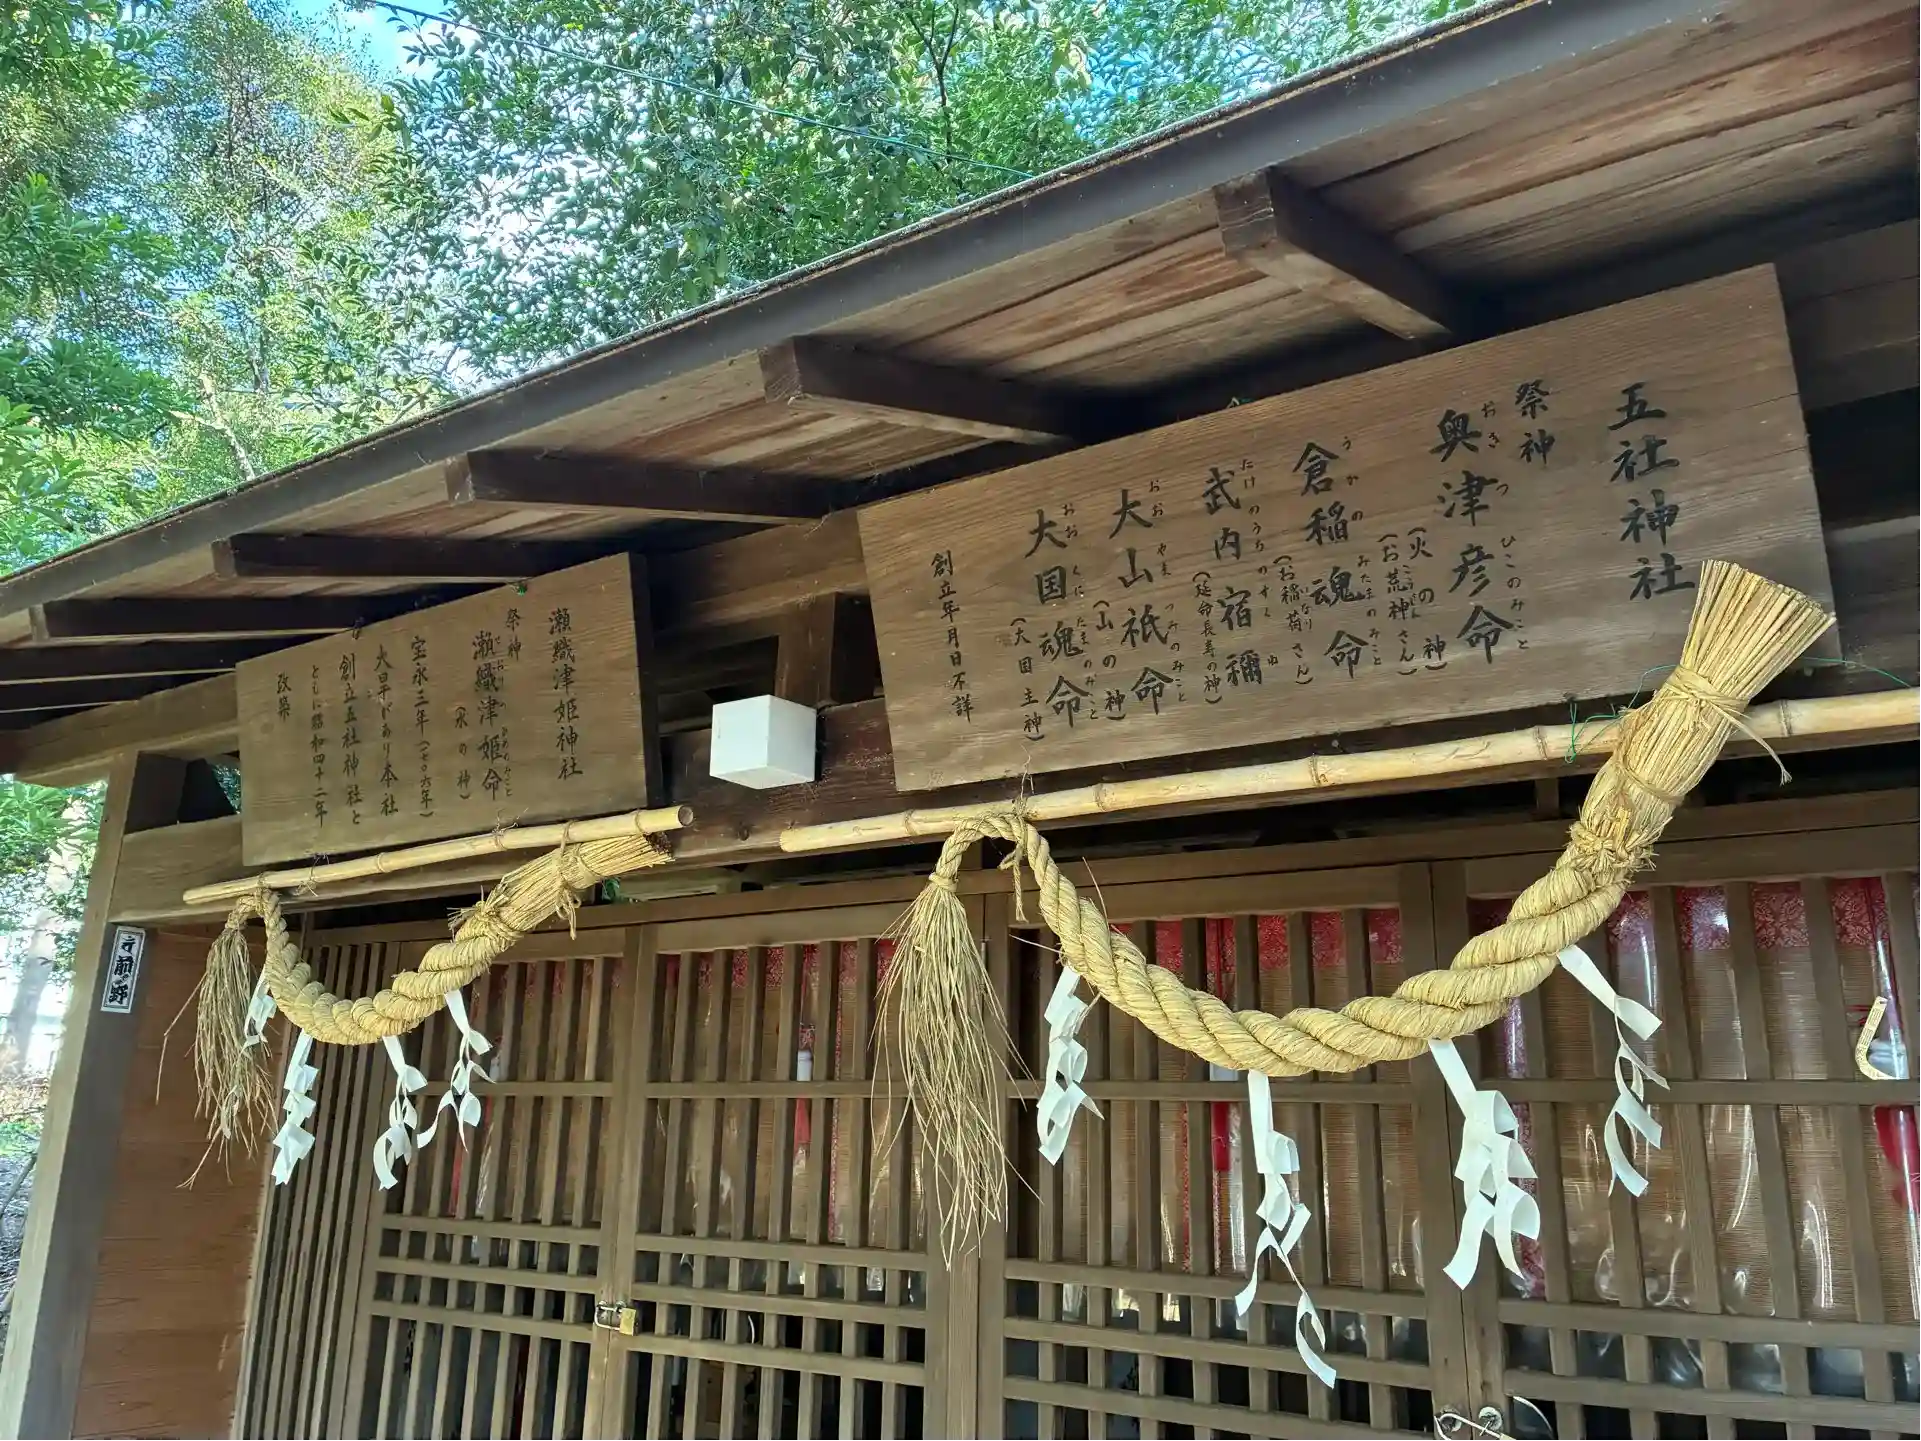 五社神社
祭神
奥津彦命
おきつひこのみこと
(火の神)
(お荒神さん)
こうじん
倉稲魂命
うかのみたまのみこと
(お稲荷さん)
いなり
武内宿禰
たけのうちのすくね
(延命長寿の神)
大山祇命
おおやまつみのみこと
(山の神)
大国魂命
おおくにたまのみこと
(大国主神)
創立年月日不詳
瀬織津姫神社
祭神
瀬織津姫命
せおりつひめのみこと
(水の神)
宝永三年(一七〇六年)
大旱ばつあり本社
創立五社神社と
ともに昭和四十二年
改築
前野